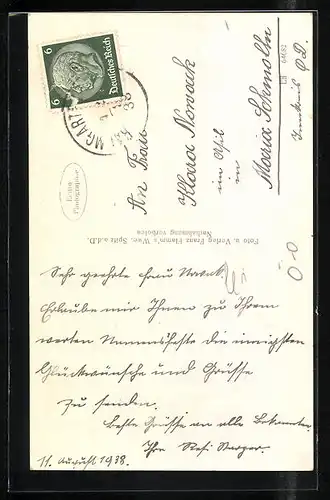 6 Deutsches Reich 6
MGART
38
An Frau
Klara Nowack
im Asyl
in
Maria Schmolln
Innkreis O.D.
Echte
Photographie
Foto u. Verlag Franz Flamm's Wwe, Spitz a.d.D.
Nachahmung verboten
Sehr geehrte Frau Nowak
Erlaube mir Ihnen zu Ihrem
werten Namensfeste die innigsten
Glückwünsche und Grüsse
zu senden.
Beste Grüsse an alle Bekannten
Ihre Resi
11. August 1938.